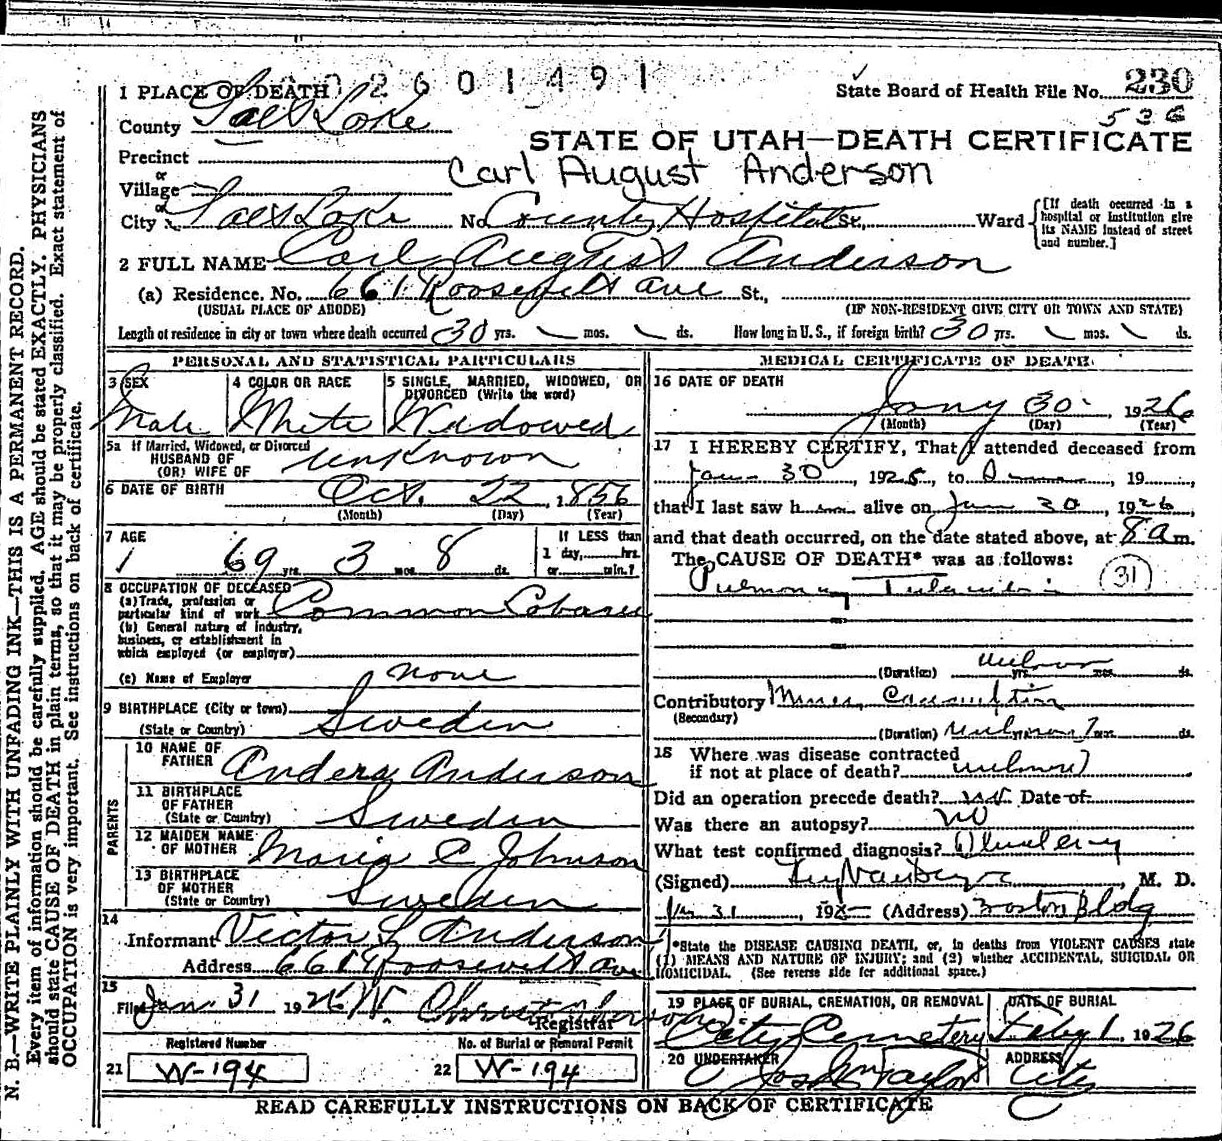 2601491
1 PLACE OF DEATH
State Board of Health File No. 230
536
County Salt Lake
STATE OF UTAH—DEATH CERTIFICATE
Precinct
or
Village
Carl August Anderson
or
City Salt Lake No. County Hospital St., Ward
[If death occurred in a hospital or institution give its NAME instead of street and number.]
2 FULL NAME Carl August Anderson
(a) Residence. No. 661 Roosevelt ave St.,
(USUAL PLACE OF ABODE) (IF NON-RESIDENT GIVE CITY OR TOWN AND STATE)
Length of residence in city or town where death occurred 30 yrs. mos. ds. How long in U. S., if foreign birth? 30 yrs. mos. ds.
PERSONAL AND STATISTICAL PARTICULARS
3 SEX 4 COLOR OR RACE 5 SINGLE, MARRIED, WIDOWED, OR DIVORCED (Write the word)
Male White Widowed
5a If Married, Widowed, or Divorced
HUSBAND OF
(OR) WIFE OF unknown
6 DATE OF BIRTH Oct. 22, 1856
(Month) (Day) (Year)
7 AGE If LESS than
69 yrs. 3 mos. 8 ds. 1 day, hrs.
or min.?
8 OCCUPATION OF DECEASED
(a) Trade, profession or
particular kind of work Common Laborer
(b) General nature of industry,
business, or establishment in
which employed (or employer)
(c) Name of Employer none
9 BIRTHPLACE (City or town)
(State or Country) Sweden
PARENTS
10 NAME OF
FATHER Anders Anderson
11 BIRTHPLACE
OF FATHER
(State or Country) Sweden
12 MAIDEN NAME
OF MOTHER Maria C Johnson
13 BIRTHPLACE
OF MOTHER
(State or Country) Sweden
14
Informant Victor L Anderson
Address 661 Roosevelt ave
15
Filed Jan. 31 1926 W.
Registrar
Registered Number No. of Burial or Removal Permit
21 W-194 22 W-194
MEDICAL CERTIFICATE OF DEATH
16 DATE OF DEATH
Jany 30, 1926
(Month) (Day) (Year)
17 I HEREBY CERTIFY, That I attended deceased from
Jan 30, 1925, to , 19
that I last saw h alive on Jan 30, 1926,
and that death occurred, on the date stated above, at 8 a m.
The CAUSE OF DEATH* was as follows:
Pulmonary Tuberculosis 31
(Duration) yrs. mos. ds.
Contributory Miners Consumption
(Secondary)
(Duration) yrs. mos. ds.
18 Where was disease contracted
if not at place of death?
Did an operation precede death? no Date of
Was there an autopsy? no
What test confirmed diagnosis?
(Signed) M. D.
31, 192 (Address) Boston Bldg
*State the DISEASE CAUSING DEATH, or, in deaths from VIOLENT CAUSES state
(1) MEANS AND NATURE OF INJURY; and (2) whether ACCIDENTAL, SUICIDAL OR
HOMICIDAL. (See reverse side for additional space.)
19 PLACE OF BURIAL, CREMATION, OR REMOVAL DATE OF BURIAL
City Cemetery Feby 1, 1926
20 UNDERTAKER ADDRESS
Jos Wm Taylor City
READ CAREFULLY INSTRUCTIONS ON BACK OF CERTIFICATE
N. B.—WRITE PLAINLY WITH UNFADING INK—THIS IS A PERMANENT RECORD.
Every item of information should be carefully supplied. AGE should be stated EXACTLY. PHYSICIANS
should state CAUSE OF DEATH in plain terms, so that it may be properly classified. Exact statement of
OCCUPATION is very important. See instructions on back of certificate.